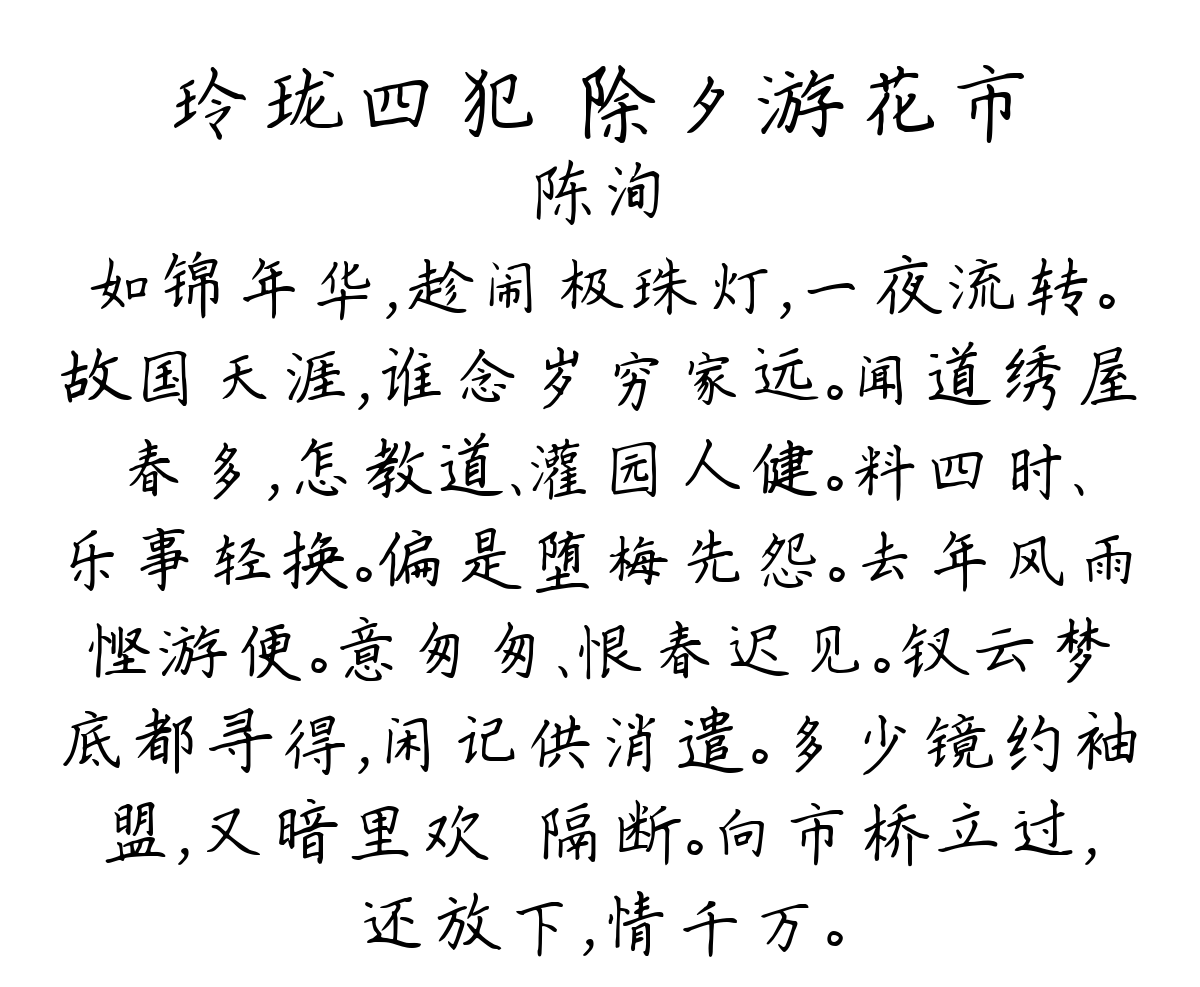 玲珑四犯 除夕游花市
陈洵
如锦年华,趁闹极珠灯,一夜流转。
故国天涯,谁念岁穷家远。闻道绣屋
春多,怎教道、灌园人健。料四时、
乐事轻换。偏是堕梅先怨。去年风雨
悭游便。意匆匆、恨春迟见。钗云梦
底都寻得,闲记供消遣。多少镜约袖
盟,又暗里欢 隔断。向市桥立过,
还放下,情千万。